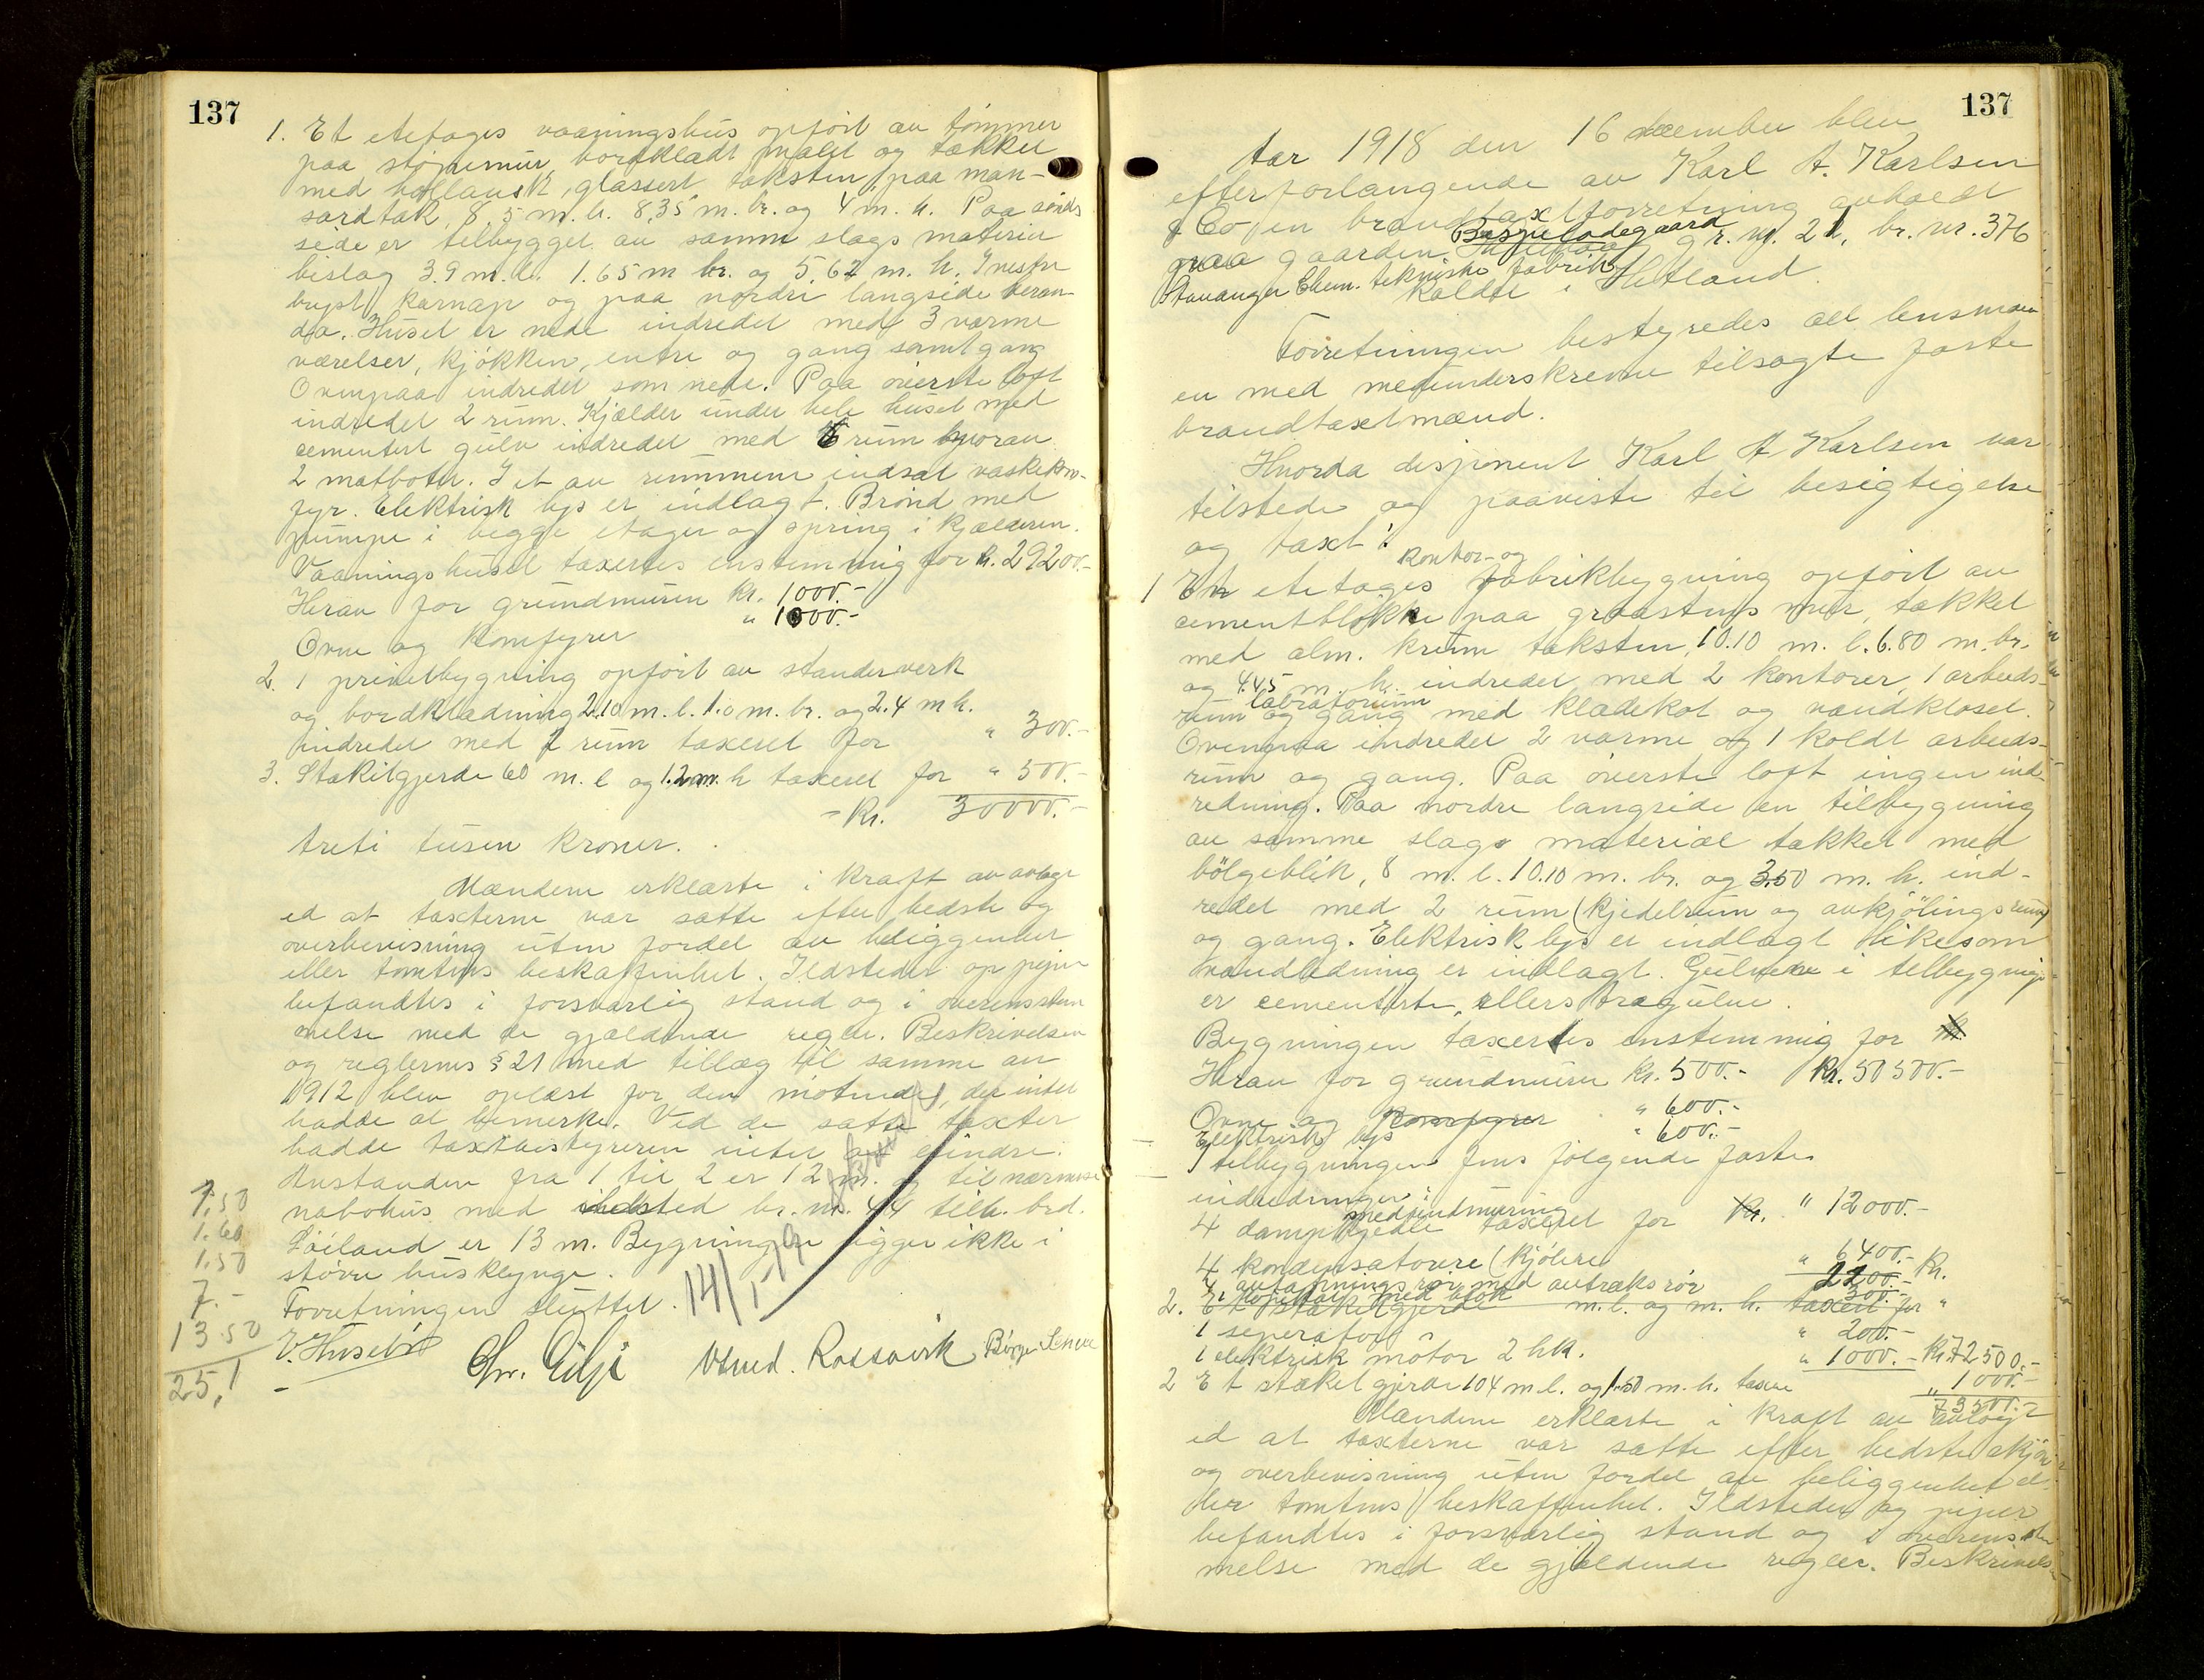 137
1. Et etetages vaaningshus opført av tømmer
paa støpemur, bordklædt malet og tækket
med hollansk, glassert taksten, paa man-
sardtak, 8,5 m. l. 8,35 m. br. og 4 m. h. Paa
side er tilbygget av samme slags materiu
bislag 3.9 m. l. 1.65 m br. og 5,62 m. h. I vestre
bryst karnap og paa nordre langside veran-
da. Huset er nede indredet med 3 varme
værelser, kjøkken, entre og gang samt gang
Ovenpaa indredet som nede. Paa øverste loft
indredet 2 rum. Kjælder under hele huset med
cementert gulv indredet med 6 rum hvorav
2 matboder. I et av rummene indsat vaskekom-
fyr. Elektrisk lys er indlagt. Brønd med
pumpe i begge etager og spring i kjælderen.
Vaaningshuset taxertes enstemmig for kr. 29200.-
Herav for grundmuren kr. 1000.-
Ovne og komfyrer " 1000.-
2. 1 privetbygning opført av standerverk
og bordklædning 2.10 m. l. 1.0 m. br. og 2.4 m h.
indredet med 1 rum taxeret for " 300.-
3. Stakitgjerde 60 m. l og 1.2 m. h taxeret for " 500.-
- Kr. 30000.-
treti tusen kroner.
Mændene erklærte i kraft av avlagt
ed at taxterne var satte efter bedste og
overbevisning uten fordel av beliggenhet
eller tomtens beskaffenhet. Ildsteder og piper
befandtes i forsvarlig stand og i overensstem
melse med de gjældende regler. Beskrivelsen
og reglernes § 21 med tillæg til samme av
1912 blev oplæst for den møtende, der intet
hadde at bemerke. Ved de satte taxter
hadde taxtbestyreren intet at erindre.
Avstanden fra 1 til 2 er 12 m. og til nærmeste
nabohus med ildsted br. nr. 44 tilh. brd.
Løiland er 13 m. Bygningen ligger ikke i
større husklynge.
Forretningen sluttet.
14/1-19
E. Husebø Chr. Eilje Rossavik Børge
1,50
1.60
1.50
7.-
13.50
25,1
137
Aar 1918 den 16 december blev
efter forlangende av Karl A. Karlsen
& Co, en brandtaxtforretning avholdt
paa gaarden Bispeladegaard gr. nr. 21, br. nr. 376
Stavanger Chem. tekniske fabrik
kaldte i Hetland.
Forretningen bestyredes av lensmann
en med medunderskrevne tilsagte faste
brandtaxtmænd.
Hvorda disponent Karl A Karlsen var
tilstede og paaviste til besigtigelse
og taxt:
kontor- og
1 En etetages fabrikbygning opført av
cementblokke paa graastens mur, tækket
med alm. krum taksten, 10.10 m. l. 6.80 m. br.
og 4.45 m. h. indredet med 2 kontorer, 1 arbeids-
labratorium
rum og gang med klædekot og vandkloset.
Ovenpaa indredet 2 varme og 1 koldt arbeids-
rum og gang. Paa øverste loft ingen ind-
redning. Paa nordre langside en tilbygning
av samme slags material tækket med
bölgeblik, 8 m. l. 10.10 m. br. og 3.50 m. h. ind-
redet med 2 rum (kjedelrum og avkjølingsrum)
og gang. Elektrisk lys er indlagt likesom
vandledning er indlagt. Gulvene i tilbygning
er cementerte, ellers trægulve.
Bygningen taxertes enstemmig for
Herav for grundmuren kr. 500.- Kr. 50500.-
Ovne og komfyrer " 600.-
Elektrisk lys " 600.-
I tilbygningen fins følgende faste
indredninger:
med indmuring
4 dampkjedler taxeret for Kr. " 12000.-
4 kondensatorer (kjølere " 6400.- Kr.
4 avtapningsrør med avtræksrør 2200.-
2. Et stakitgjerde m. l. og m. h. taxert for "
1 kopekar med 300.-
1 seperator " 200.-
1 elektrisk motor 2 hk. " 1000.- Kr. 72500.-
2 Et stakitgjerde 104 m l. og 1.50 m. h. taxert " 1000.-
73500.-
Mændene erklærte i kraft av avlagt
ed at taxterne var satte efter bedste skjøn
og overbevisning uten fordel av beliggenhet el-
ler tomtens beskaffenhet. Ildsteder og piper
befandtes i forsvarlig stand og i overensstem
melse med de gjældende regler. Beskrivels